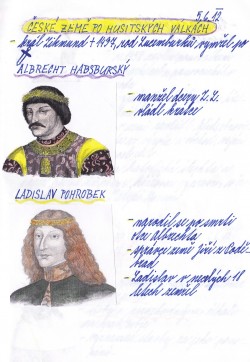 5.6.12
ČESKÉ ZEMĚ PO HUSITSKÝCH VÁLKÁCH
- král Zikmund + 1437, rod Lucemburků vymřel po
ALBRECHT HABSBURSKÝ
- manžel dcery Z. L.
- vládl krátce
LADISLAV POHROBEK
- narodil se po smrti
otce Albrechta
- správce země Jiří z Poděbrad
- Ladislav v necelých 18
letech zemřel